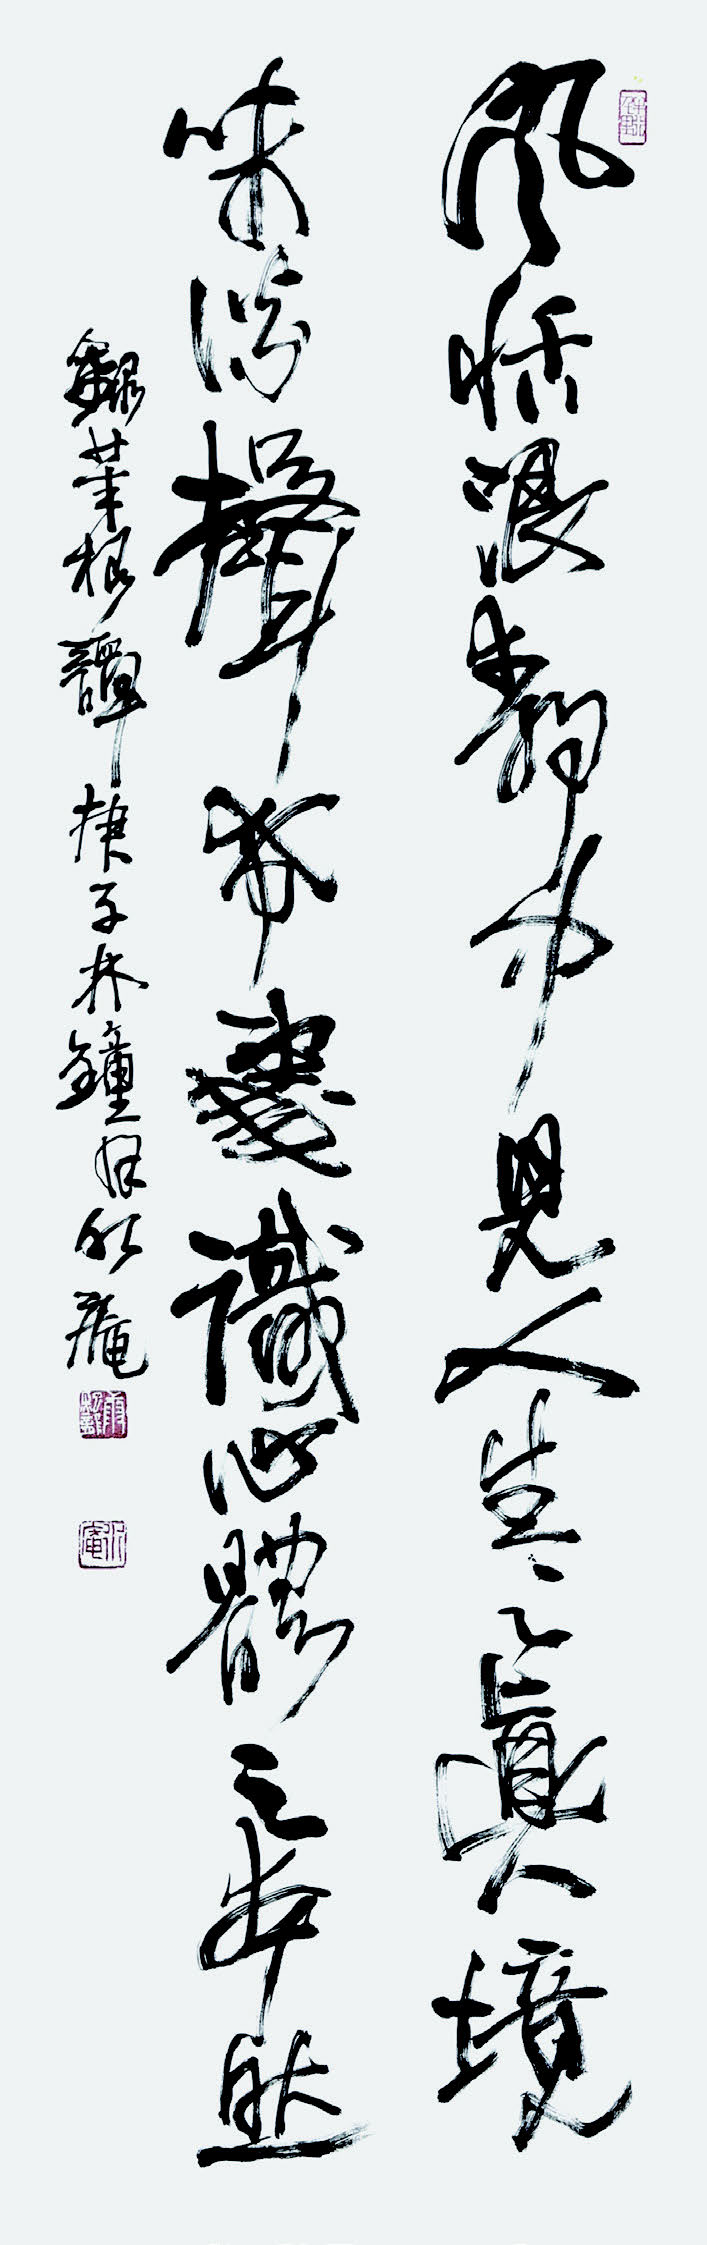 風恬浪靜中見人生之眞境
味淡聲希處識心體之本然
錄菜根譚 庚子林鐘月 庵